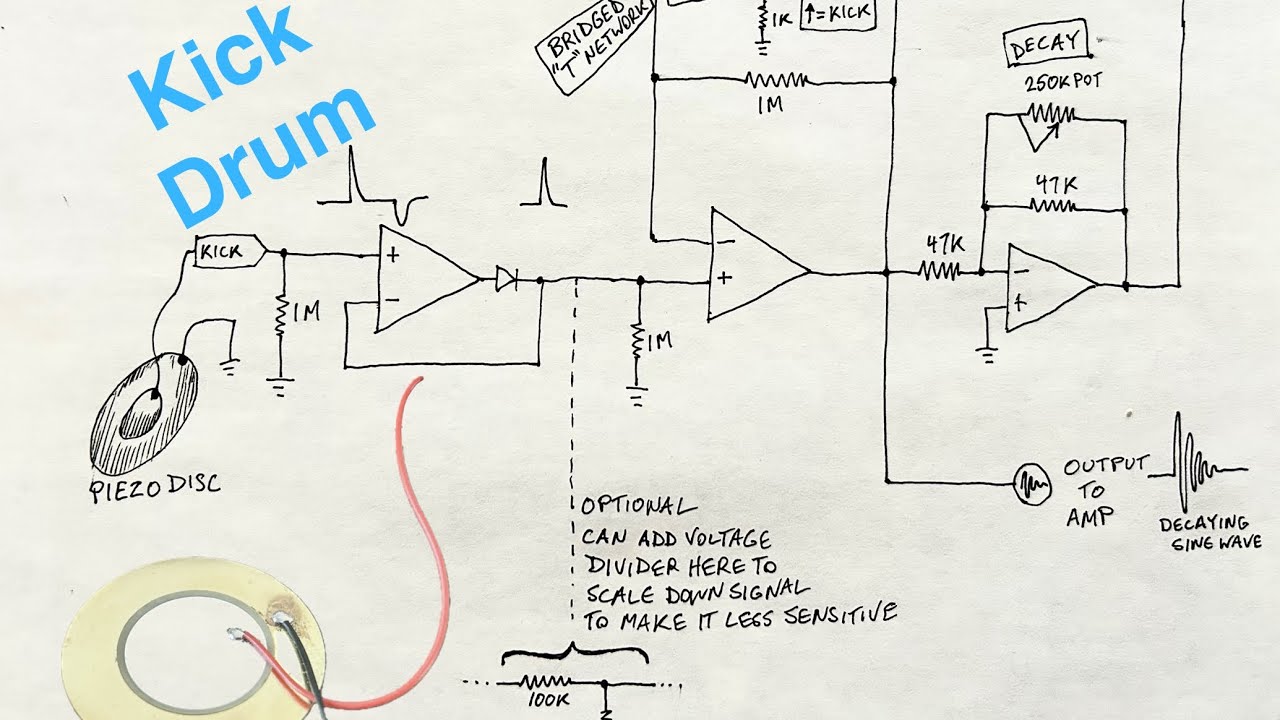 Kick
Drum
BRIDGED
"T" NETWORK
1K
↑=KICK
1M
DECAY
250K POT
47K
KICK
+
-
1M
1M
-
+
47K
-
+
PIEZO DISC
OUTPUT
TO
AMP
DECAYING
SINE WAVE
OPTIONAL
CAN ADD VOLTAGE
DIVIDER HERE TO
SCALE DOWN SIGNAL
TO MAKE IT LESS SENSITIVE
100K